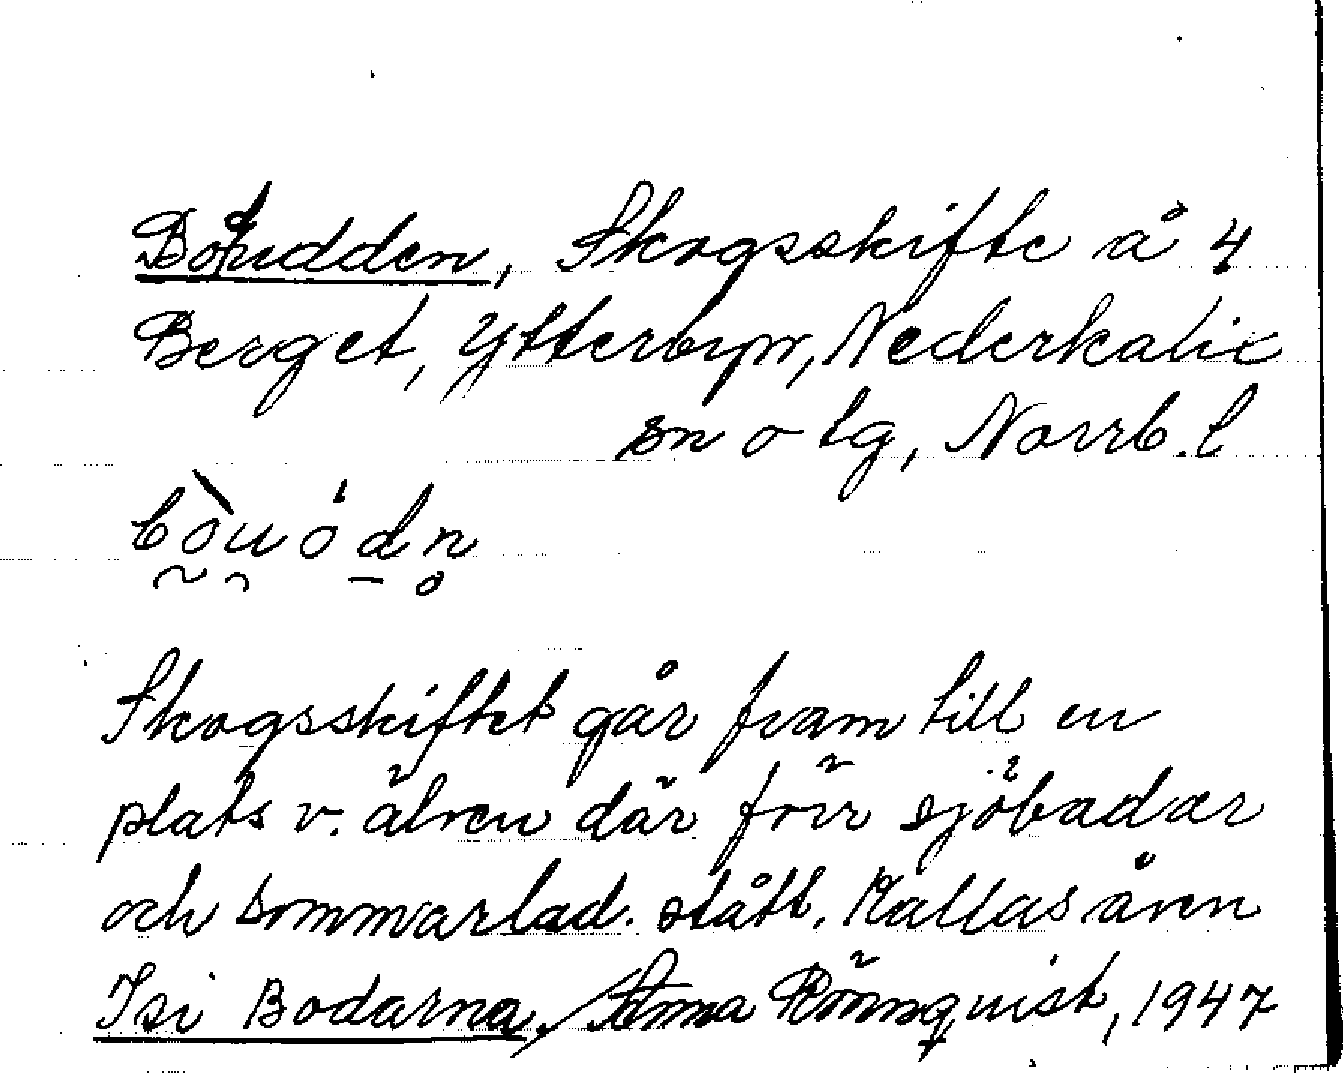 Bodudden, Skogsskifte å 4
Berget, Ytterbyn, Nederkalix
sn o tg, Norrb. l
Skogsskiftet går fram till en
plats v. älven där förr sjöbodar
och sommarlad. stått. Kallas även
Isi Bodarna, Anna Rönnquist, 1947